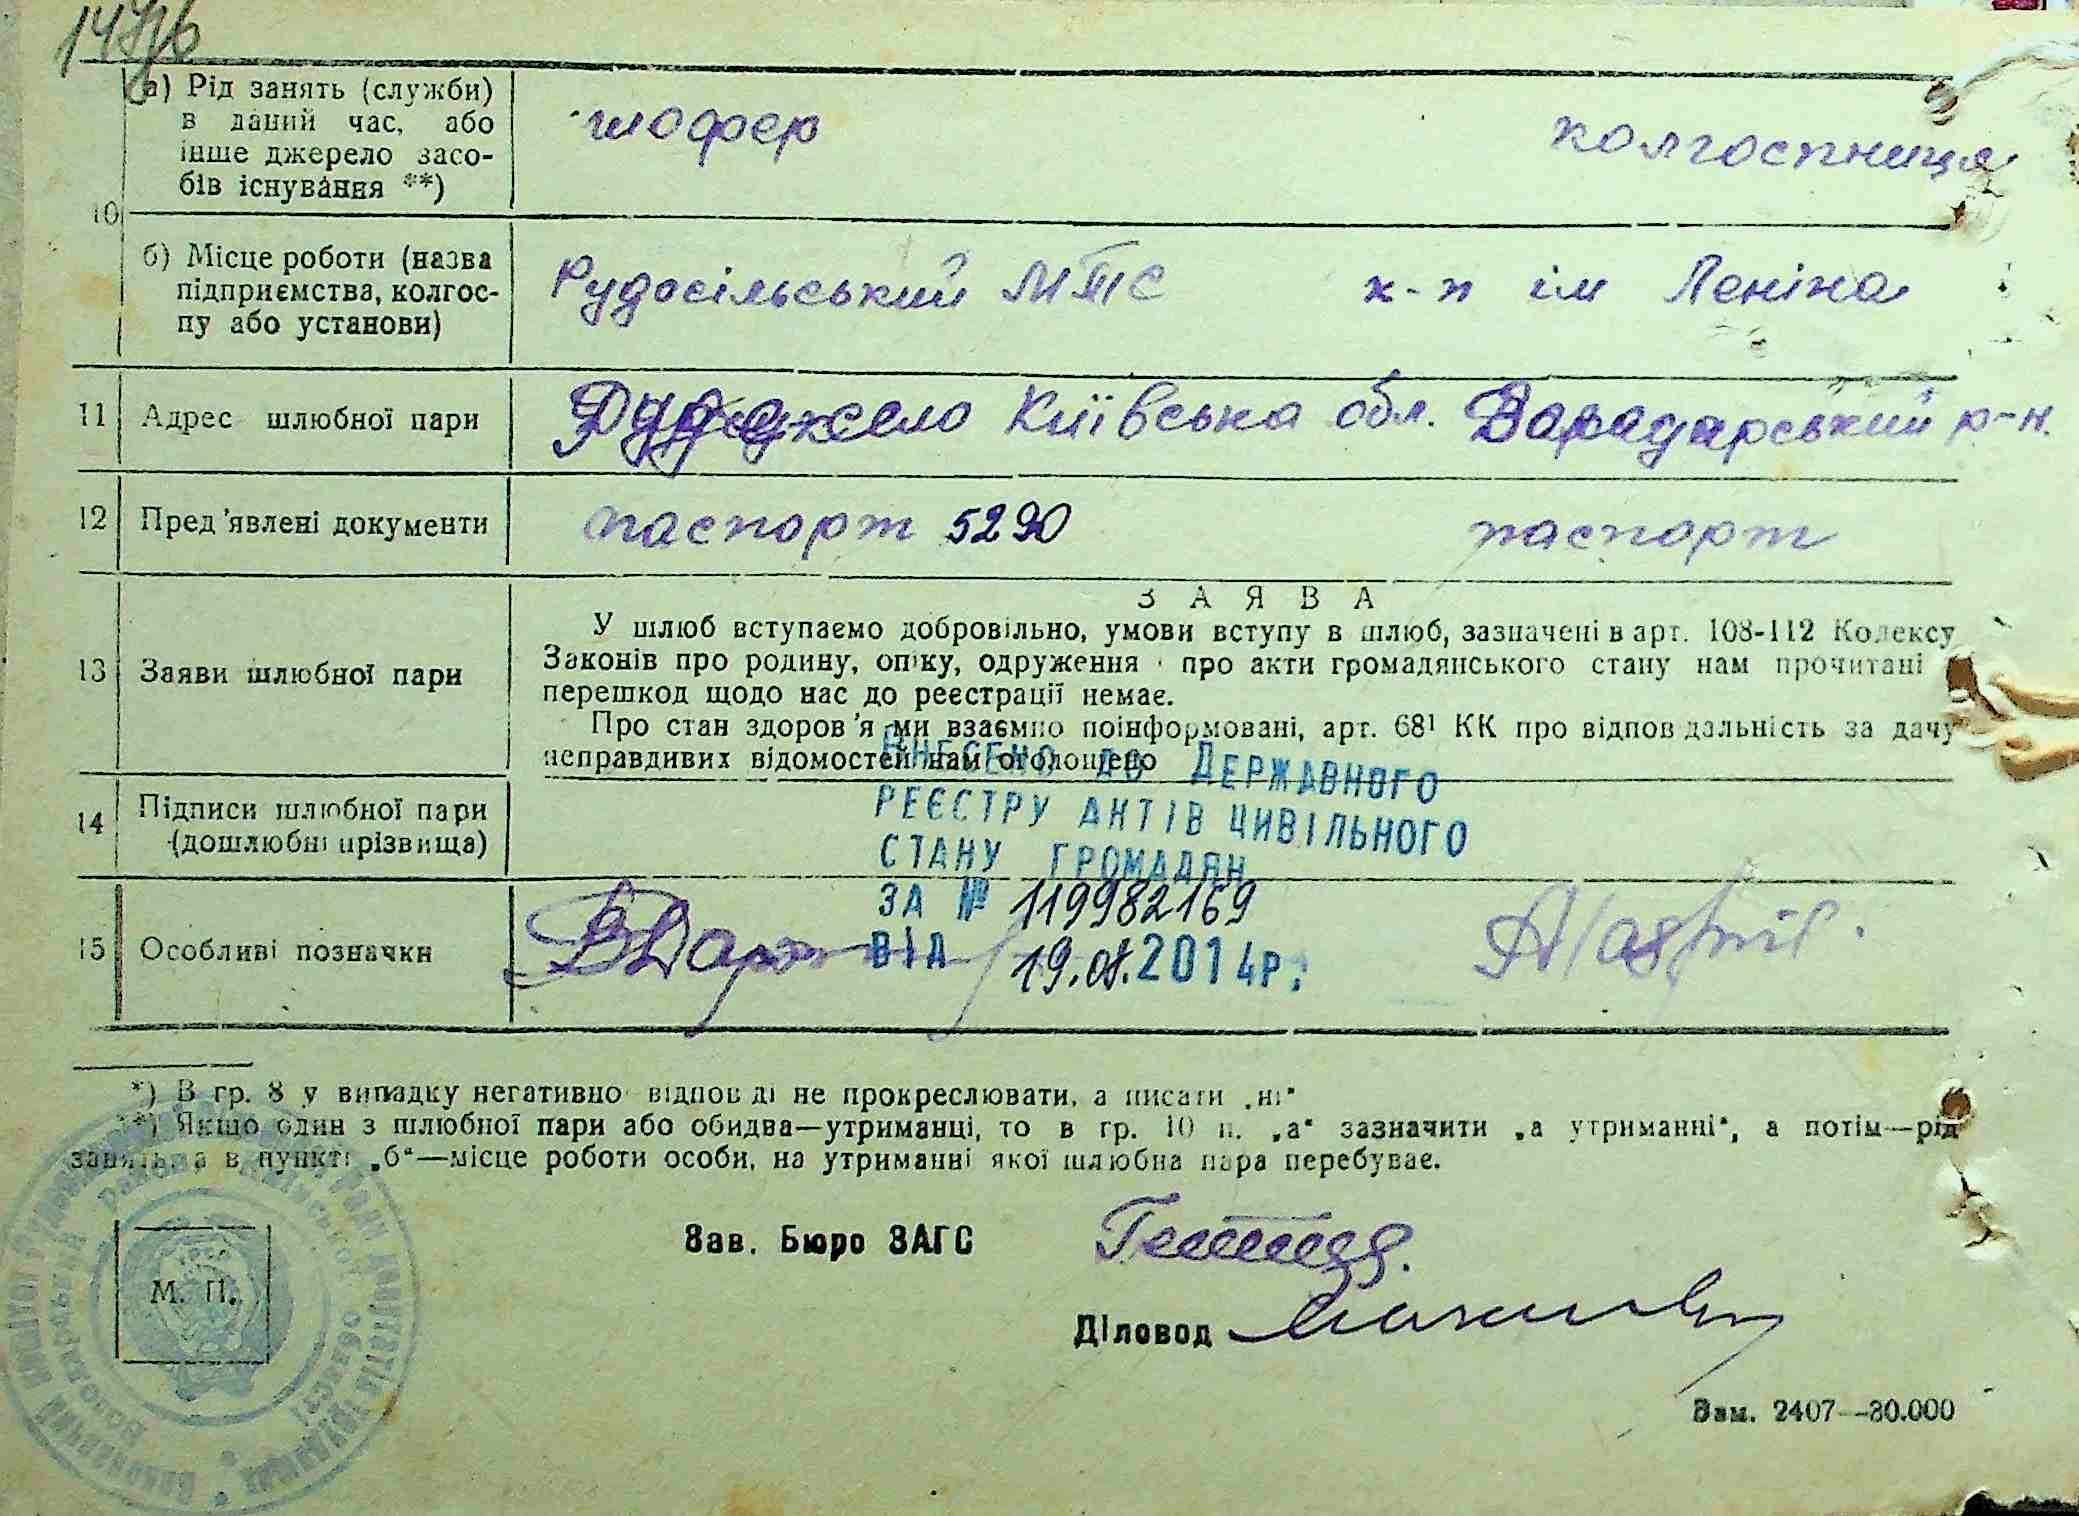 а) Рід занять (служби)
в даний час, або
інше джерело засо-
бів існування **)
шофер
колгоспниця
10
б) Місце роботи (назва
підприємства, колгос-
пу або установи)
Рудосільський МТС
к-п ім Леніна
11
Адрес шлюбної пари
село Київська обл. Варадарський р-н.
12
Пред'явлені документи
паспорт 5290
паспорт
ЗАЯВА
13
Заяви шлюбної пари
У шлюб вступаємо добровільно, умови вступу в шлюб, зазначені в арт. 108-112 Кодексу
Законів про родину, опіку, одруження про акти громадянського стану нам прочитані
перешкод щодо нас до реєстрації немає.
Про стан здоров'я ми взаємно поінформовані, арт. 68¹ КК про відповідальність за дачу
неправдивих відомостей нам оголошено
ВНЕСЕНО ДО ДЕРЖАВНОГО
РЕЄСТРУ АКТІВ ЦИВІЛЬНОГО
СТАНУ ГРОМАДЯН
ЗА № 119982169
ВІД 19.08.2014р.
14
Підписи шлюбної пари
(дошлюбні прізвища)
15
Особливі позначки
*) В гр. 8 у випадку негативно відповіді не прокреслювати, а писати „ні"
**) Якщо один з шлюбної пари або обидва—утриманці, то в гр. 10 п. „а" зазначити „а утриманні", а потім—рід
занять, а в пункті „б"—місце роботи особи, на утриманні якої шлюбна пара перебуває.
Зав. Бюро ЗАГС
М. П.
Діловод
Зам. 2407—30.000